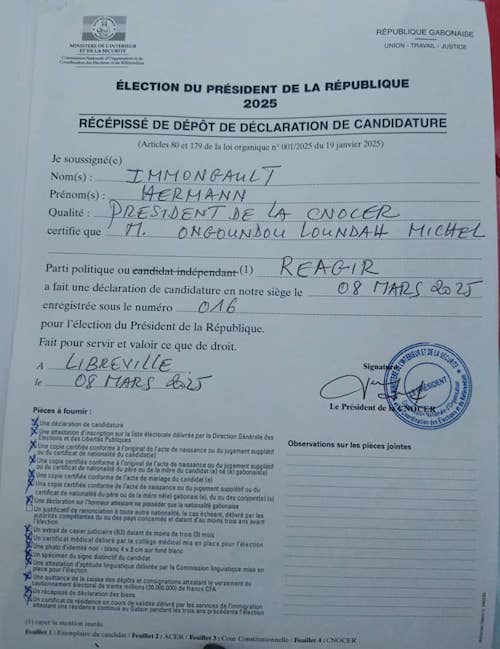 MINISTERE DE L'INTERIEUR
ET DE LA SECURITE
Commission Nationale d'Organisation et de
Coordination des Elections et du Référendum
RÉPUBLIQUE GABONAISE
UNION - TRAVAIL - JUSTICE
ÉLECTION DU PRÉSIDENT DE LA RÉPUBLIQUE
2025
RÉCÉPISSÉ DE DÉPÔT DE DÉCLARATION DE CANDIDATURE
(Articles 80 et 179 de la loi organique n° 001/2025 du 19 janvier 2025)
Je soussigné(e)
Nom(s) : IMMONGAULT
Prénom(s) : HERMANN
Qualité : PRESIDENT DE LA CNOCER
certifie que M. ONGOUNDOU LOUNDAH MICHEL
Parti politique ou candidat indépendant (1) REAGIR
a fait une déclaration de candidature en notre siège le 08 MARS 2025
enregistrée sous le numéro 016
pour l'élection du Président de la République.
Fait pour servir et valoir ce que de droit.
A LIBREVILLE
le 08 MARS 2025
Signature
Le Président de la CNOCER
PRÉSIDENT
Pièces à fournir :
Une déclaration de candidature
Une attestation d'inscription sur la liste électorale délivrée par la Direction Générale des
Elections et des Libertés Publiques
Une copie certifiée conforme à l'original de l'acte de naissance ou du jugement supplétif
ou du certificat de nationalité du candidat(e)
Une copie certifiée conforme de l'acte de naissance ou du jugement supplétif
ou du certificat de nationalité du père ou de la mère du candidat(e) né(e) gabonais(e)
Une copie certifiée conforme de l'acte de mariage du candidat(e)
Une copie certifiée conforme de l'acte de naissance ou du jugement supplétif ou du
certificat de nationalité du père ou de la mère né(e) gabonais(e), du ou des conjoint(e)(s)
Une déclaration sur l'honneur attestant ne posséder que la nationalité gabonaise
Un justificatif de renonciation à toute autre nationalité, le cas échéant, délivré par les
autorités compétentes du ou des pays concernés et datant d'au moins trois ans avant
l'élection
Un extrait de casier judiciaire (B3) datant de moins de trois (3) mois
Un certificat médical délivré par le collège médical mis en place pour l'élection
Une photo d'identité noir - blanc 4 x 3 cm sur fond blanc
Un spécimen du signe distinctif du candidat
Une attestation d'aptitude linguistique délivrée par la Commission linguistique mise en
place pour l'élection
Une quittance de la caisse des dépôts et consignations attestant le versement du
cautionnement électoral de trente millions (30.000.000) de francs CFA
Un récépissé de déclaration des biens
Un certificat de résidence en cours de validité délivré par les services de l'immigration
attestant une résidence continue au Gabon pendant les trois ans précédents l'élection
Observations sur les pièces jointes
(1) rayer la mention inutile
Feuillet 1 : Exemplaire du candidat / Feuillet 2 : ACER / Feuillet 3 : Cour Constitutionnelle / Feuillet 4 : CNOCER